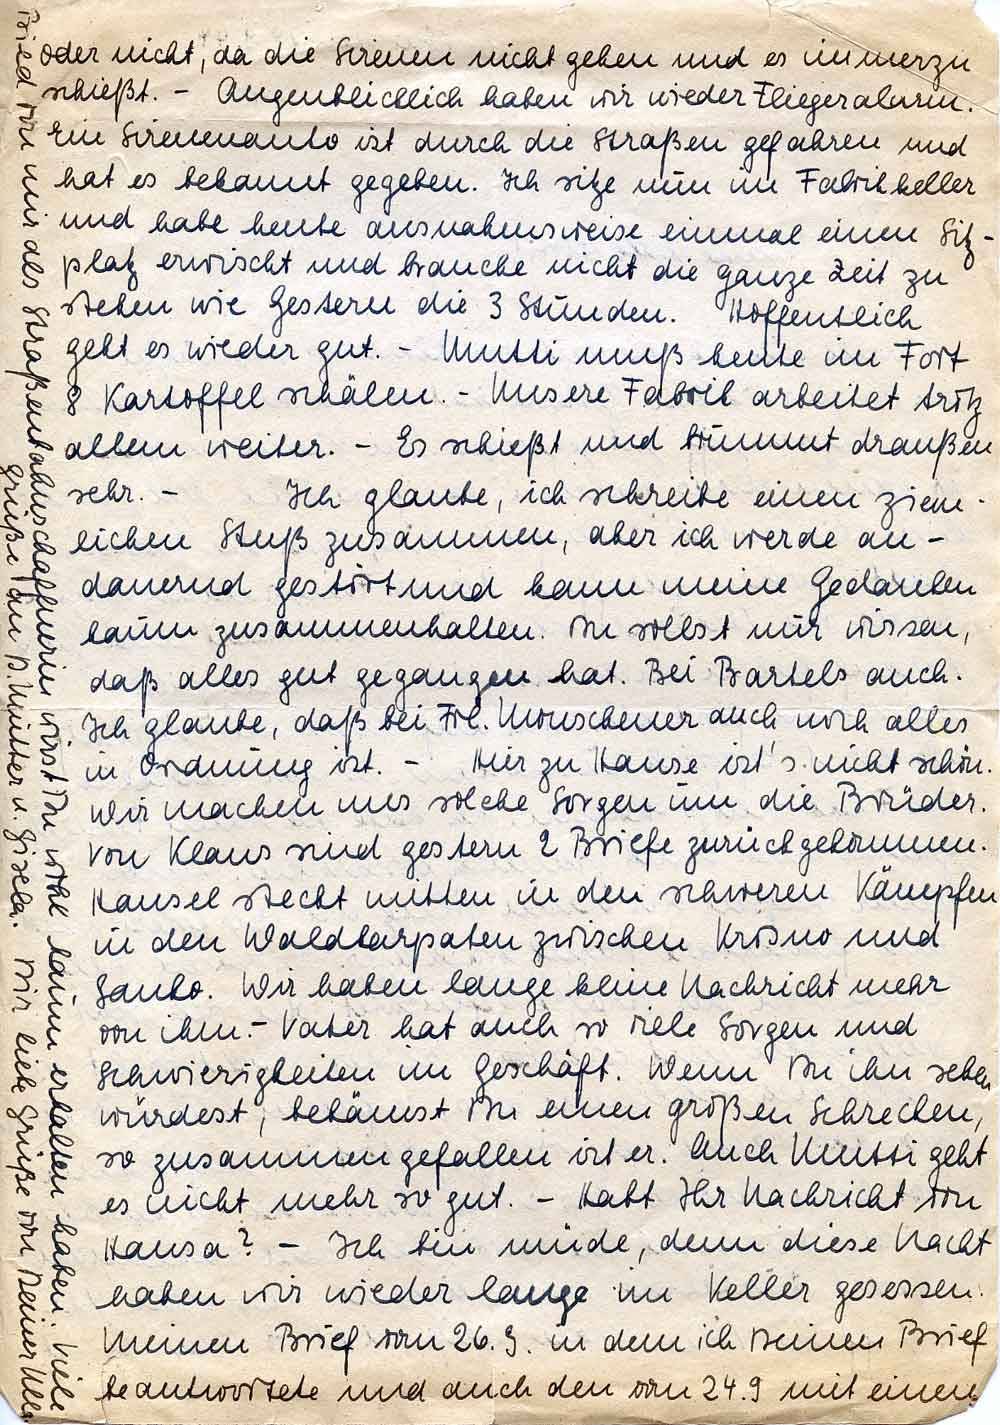 oder nicht, da die Sirenen nicht gehen und es immerzu
schießt. - Augenblicklich haben wir wieder Fliegeralarm.
Ein Sirenenauto ist durch die Straßen gefahren und
hat es bekannt gegeben. Ich sitze nun im Fabrikkeller
und habe heute ausnahmsweise einmal einen Sitz-
platz erwischt und brauche nicht die ganze Zeit zu
stehen wie Gestern die 3 Stunden. Hoffentlich
geht es wieder gut. - Mutti muß heute im Fort
8 Kartoffel schälen. - Unsere Fabrik arbeitet trotz
allem weiter. - Es schießt und brummt draußen
sehr. - Ich glaube, ich schreibe einen ziem-
lichen Stuß zusammen, aber ich werde an-
dauernd gestört und kann meine Gedanken
kaum zusammenhalten. Du sollst nur wissen,
daß alles gut gegangen hat. Bei Bartels auch.
Ich glaube, daß bei Frl. Monscheuer auch noch alles
in Ordnung ist. - Hier zu Hause ist's nicht schön.
Wir machen uns solche Sorgen um die Brüder.
Von Klaus sind gestern 2 Briefe zurückgekommen.
Hansel steckt mitten in den schweren Kämpfen
in den Waldkarpaten zwischen Krosno und
Sanko. Wir haben lange keine Nachricht mehr
von ihm. - Vater hat auch so viele Sorgen und
Schwierigkeiten im Geschäft. Wenn Du ihn sehen
würdest, bekämst Du einen großen Schrecken,
so zusammengefallen ist er. Auch Mutti geht
es nicht mehr so gut. - Habt Ihr Nachricht von
Hansa? - Ich bin müde, denn diese Nacht
haben wir wieder lange im Keller gesessen.
Meinen Brief von 26.9. in dem ich Deinen Brief
beantwortete und auch den von 24.9 mit einem
Bild von mir als Straßenbahnschaffnerin wirst Du wohl kaum erhalten haben. Viele
Grüße an D. Mutter u. Gisela. Dir liebe Grüße von Deiner